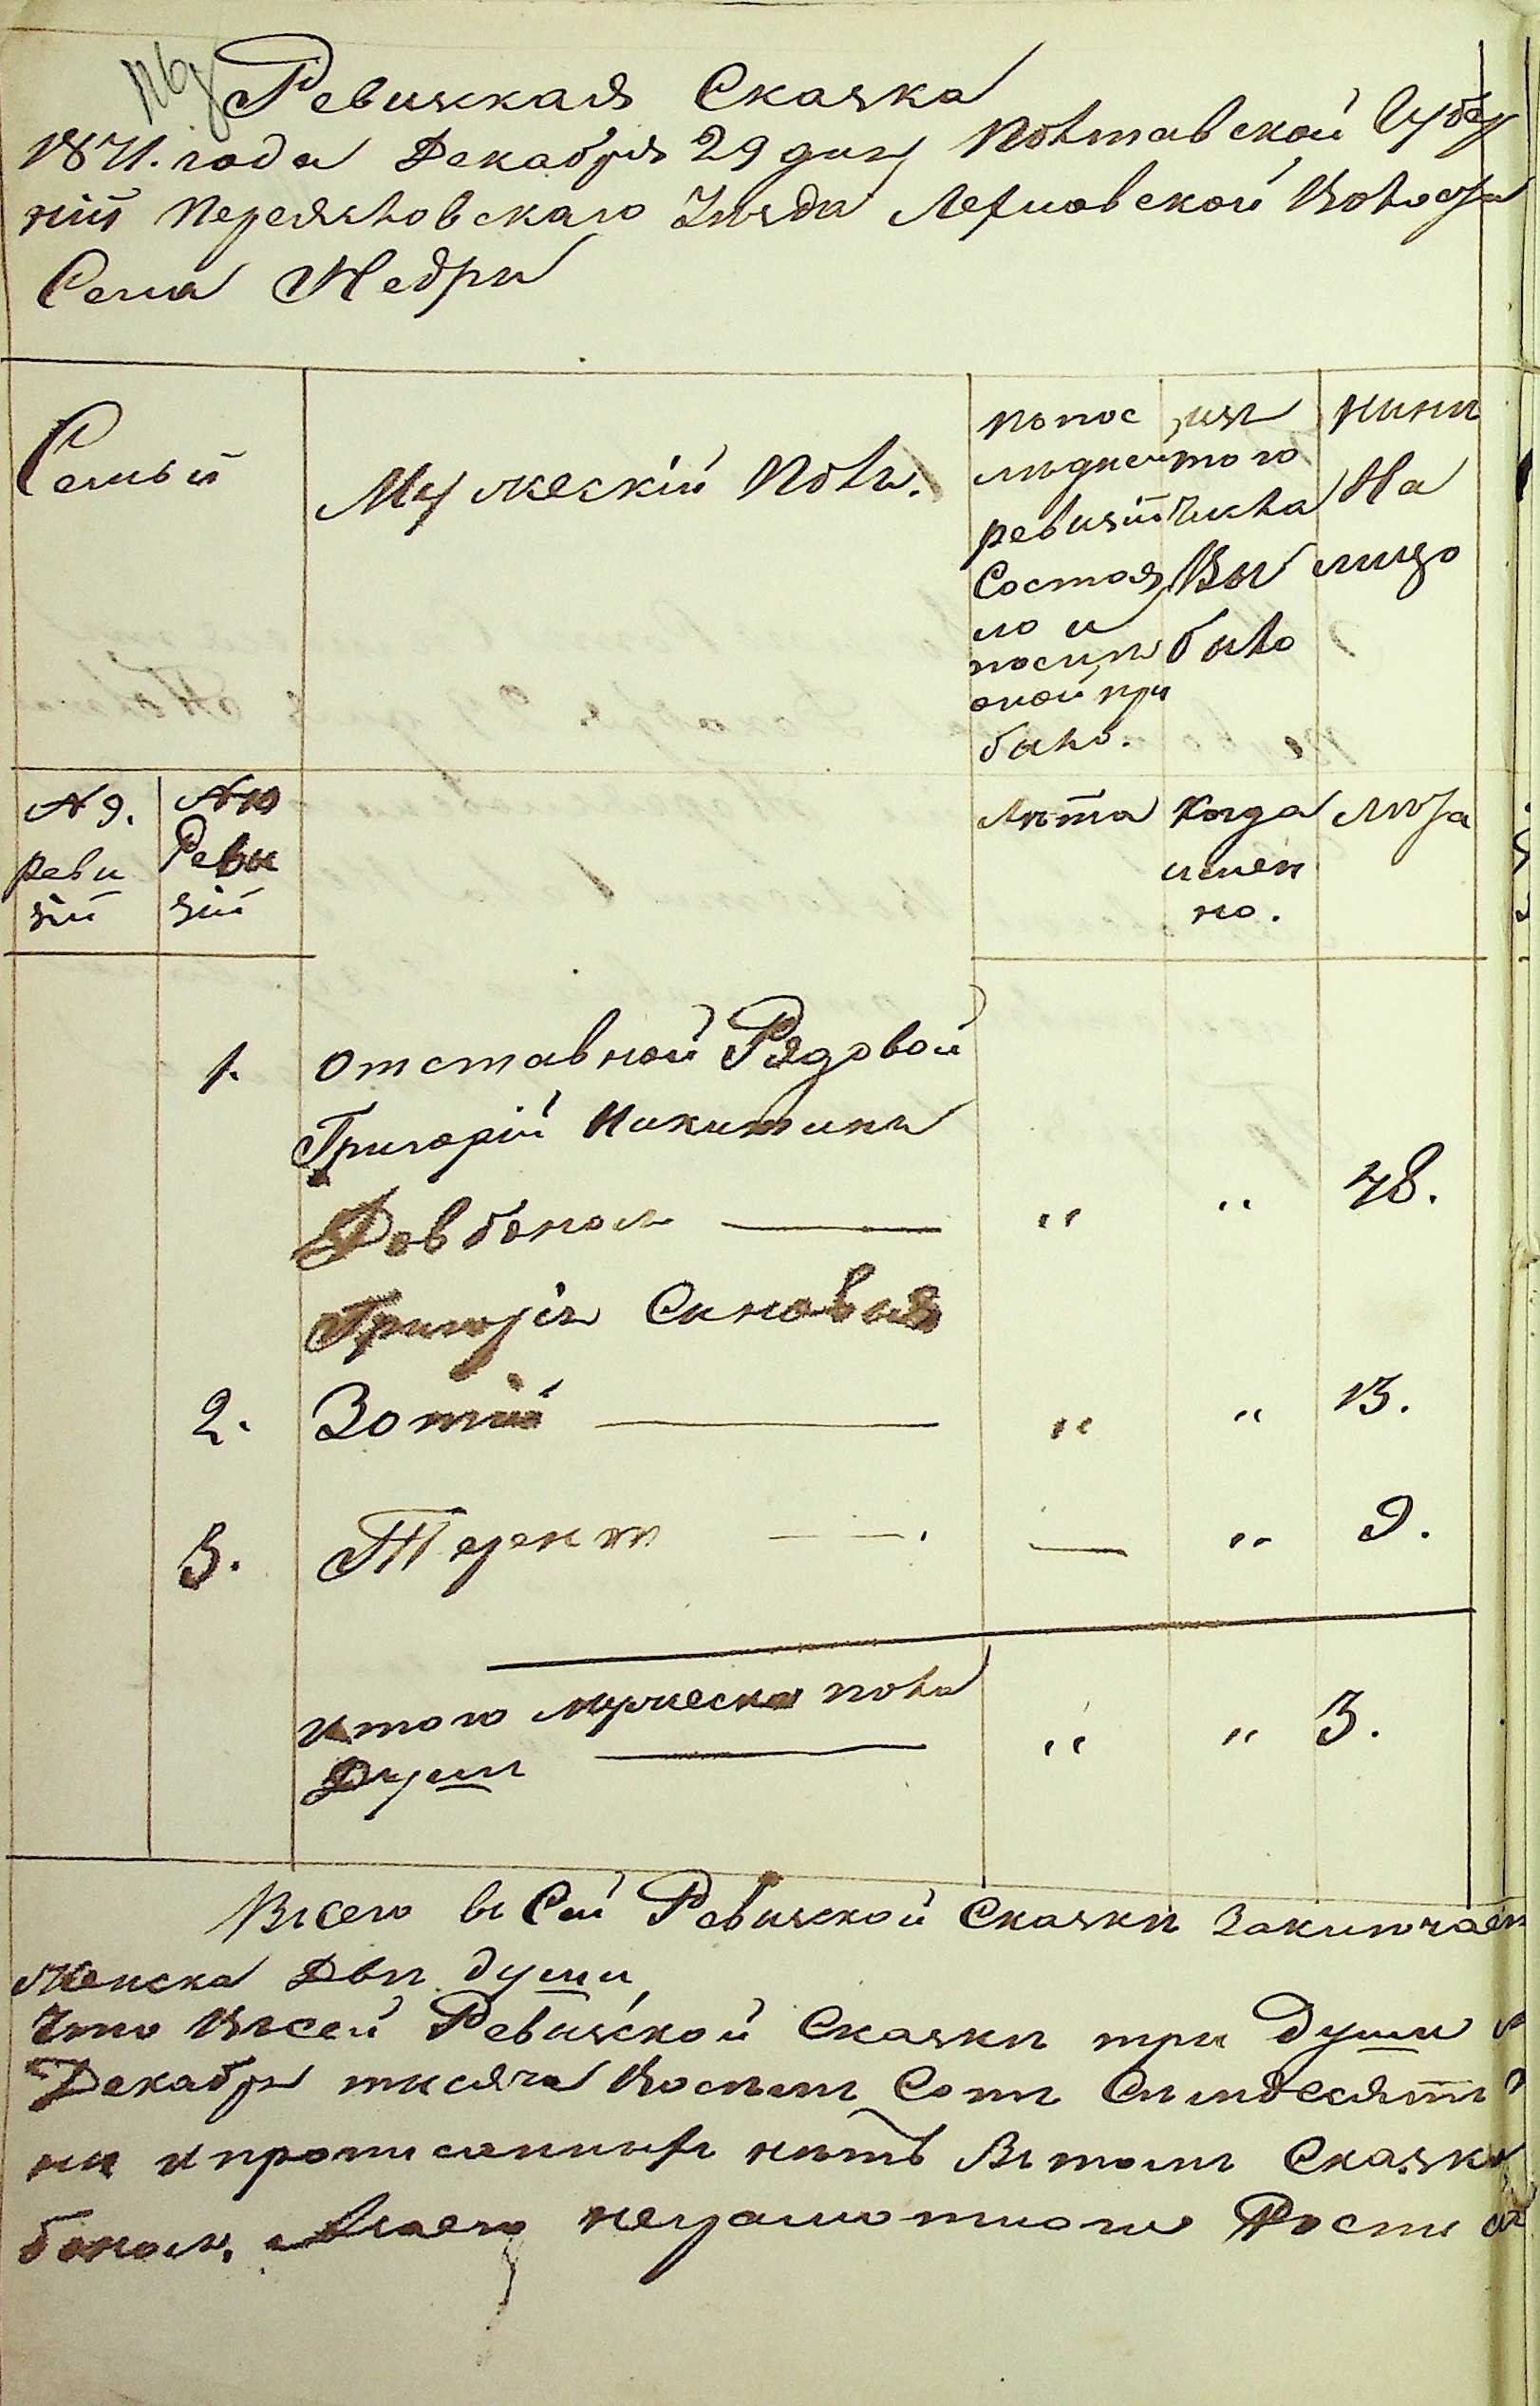 Ревизкая Сказка
1871. года Декабря 29 дня Полтавской Губер
ній Переяславскаго Уѣзда Лехновской Волости
Села Недри
Семьи
Мужескій Полъ.
По пос
лѣдней
ревизіи
Состоя
ло и
послѣ
оной при
было.
Изъ
того
Числа
Вы
было
Нинѣ
На
лицо
№ 9.
реви
зіи
№ 10
Реви
зіи
Лѣта
Когда
имен
но.
Лѣта
1. Отставной Рядовой
Григорій Никитинъ
Довбонос " " 48.
Григорія Сыновья
2. Зотій " " 13.
3. Терентій — " 9.
Итого мужеска пола
Душъ " " 3.
Всего въ Сей Ревизской Сказки Заключает
Женска Двѣ души,
Что Въ сей Ревизской Сказки три Души
Декабря тисяча Восемъ Сотъ Семдесятъ
и прописанныхъ нѣтъ Въ томъ Сказк
бонос, а неграмотного